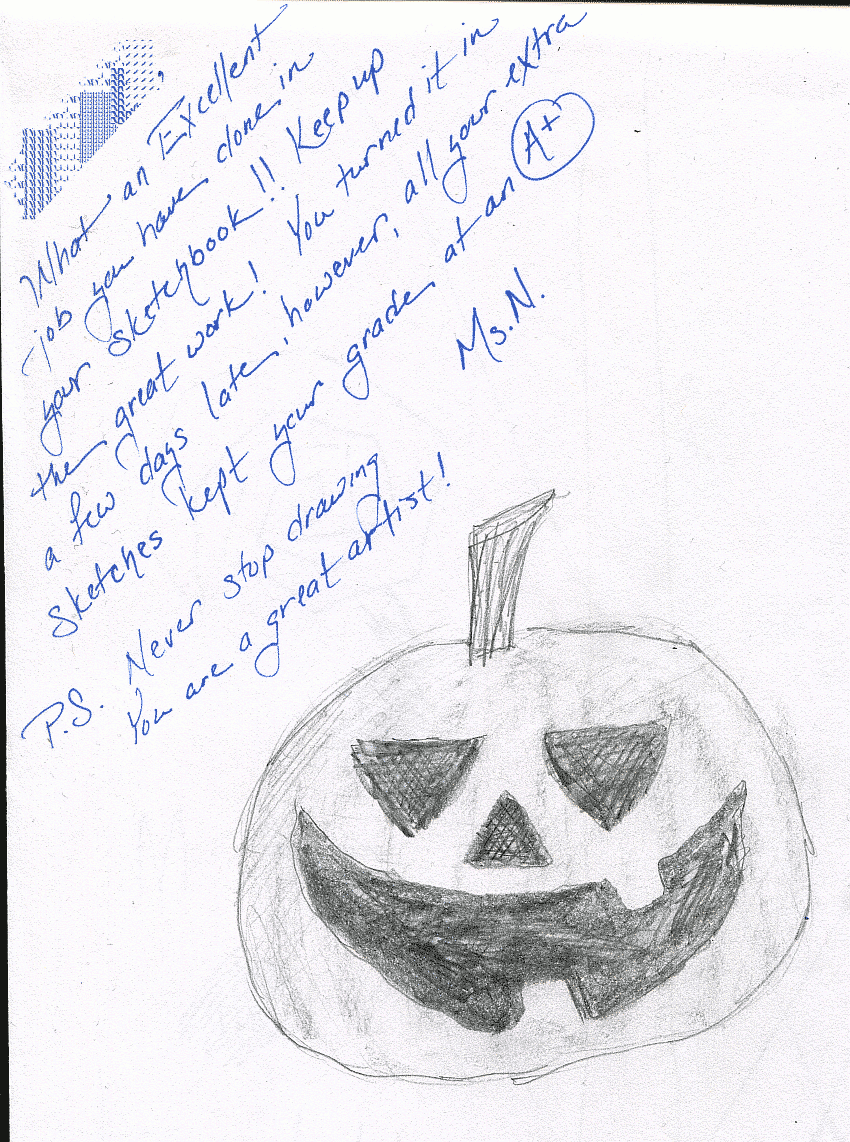 What an Excellent
job you have done in
your sketchbook!! Keep up
the great work! You turned it in
a few days late, however, all your extra
sketches kept your grade at an A+
Ms. N.
P.S. Never stop drawing
You are a great artist!